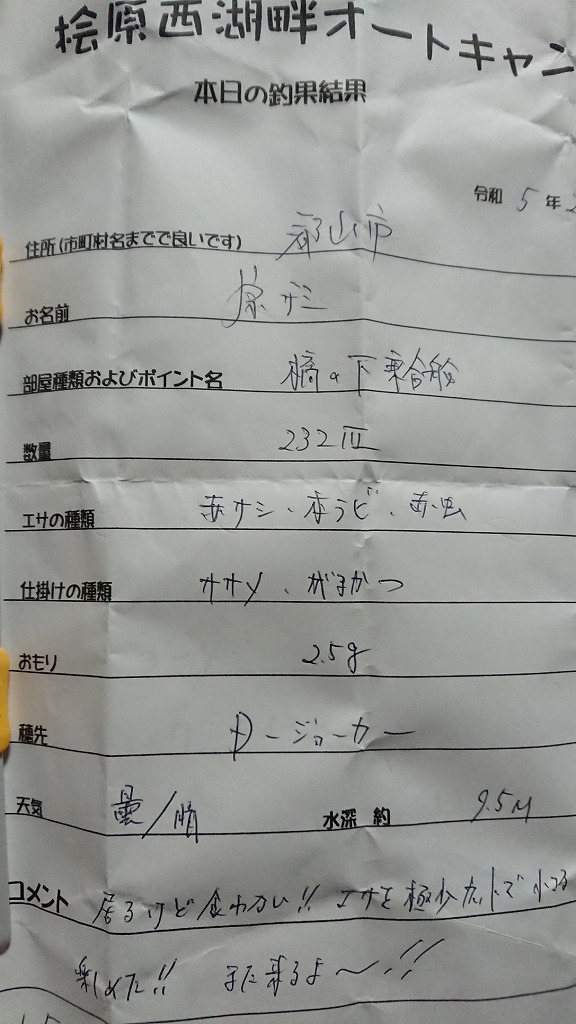 桧原西湖畔オートキャン
本日の釣果結果
令和 5 年 2
住所(市町村名までで良いです) 郡山市
お名前
部屋種類およびポイント名 橋の下乗合船
数量 232匹
エサの種類 赤サシ、本ラビ、赤虫
仕掛けの種類 ササメ、がまかつ
おもり 2.5g
穂先 ジョーカー
天気 曇/晴 水深 約 9.5M
コメント 居るけど食わない!! エサを極少カットで
楽しめた!! また来るよ〜!!